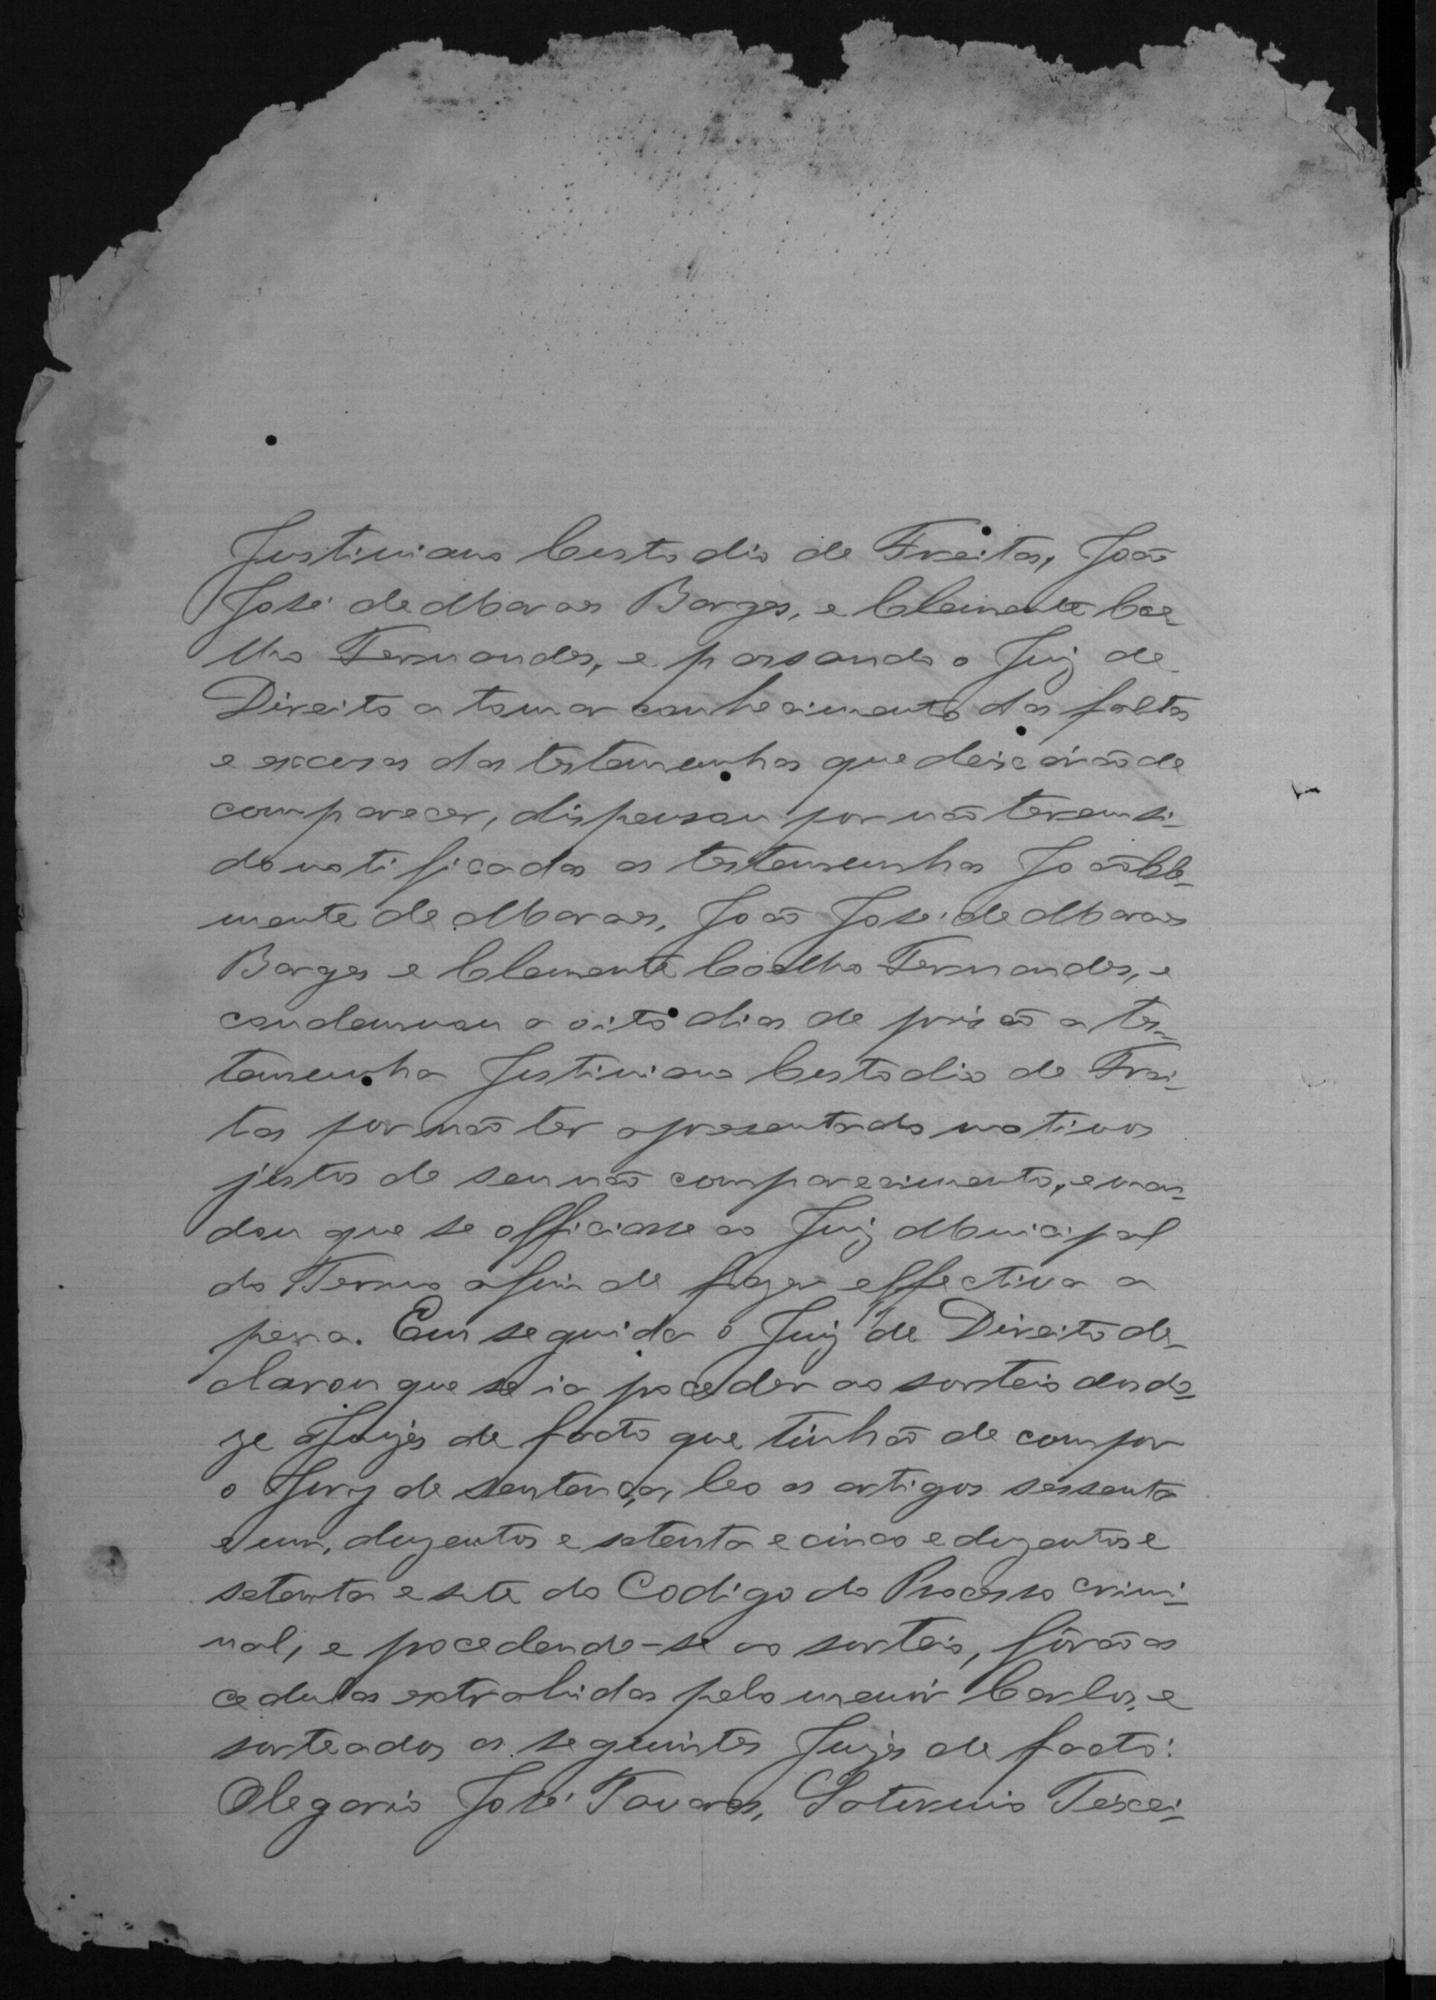 Justiniano Custodio de Freitas, João
José de Moraes Borges, e Clemente Coe-
lho Fernandes, e passando o Juiz de
Direito a tomar conhecimento das faltas
e excusas das testemunhas que deixárão de
comparecer, dispensou por não terem si-
do notificadas as testemunhas João Cle-
mente de Moraes, João José de Moraes
Borges e Clemente Coelho Fernandes, e
condemnou a oito dias de prisão a tes-
temunha Justiniano Custodio de Frei-
tas por não ter apresentado motivos
justos de seu não comparecimento, e man-
dou que se officiasse ao Juiz Municipal
do Termo afim de fazer effectiva a
pena. Em seguida o Juiz de Direito de-
clarou que se ia proceder ao sorteio dos do-
ze Juizes de facto que tinhão de compor
o Jury de sentença, leo os artigos sessenta
e um, duzentos e setenta e cinco e duzentos e
setenta e sete do Codigo do Processo crimi-
nal, e procedendo-se ao sorteio, fôrão as
cedulas extrahidas pelo menor Carlos, e
sorteados os seguintes Juizes de facto:
Olegario José Tavares, Saturnino Teixei-